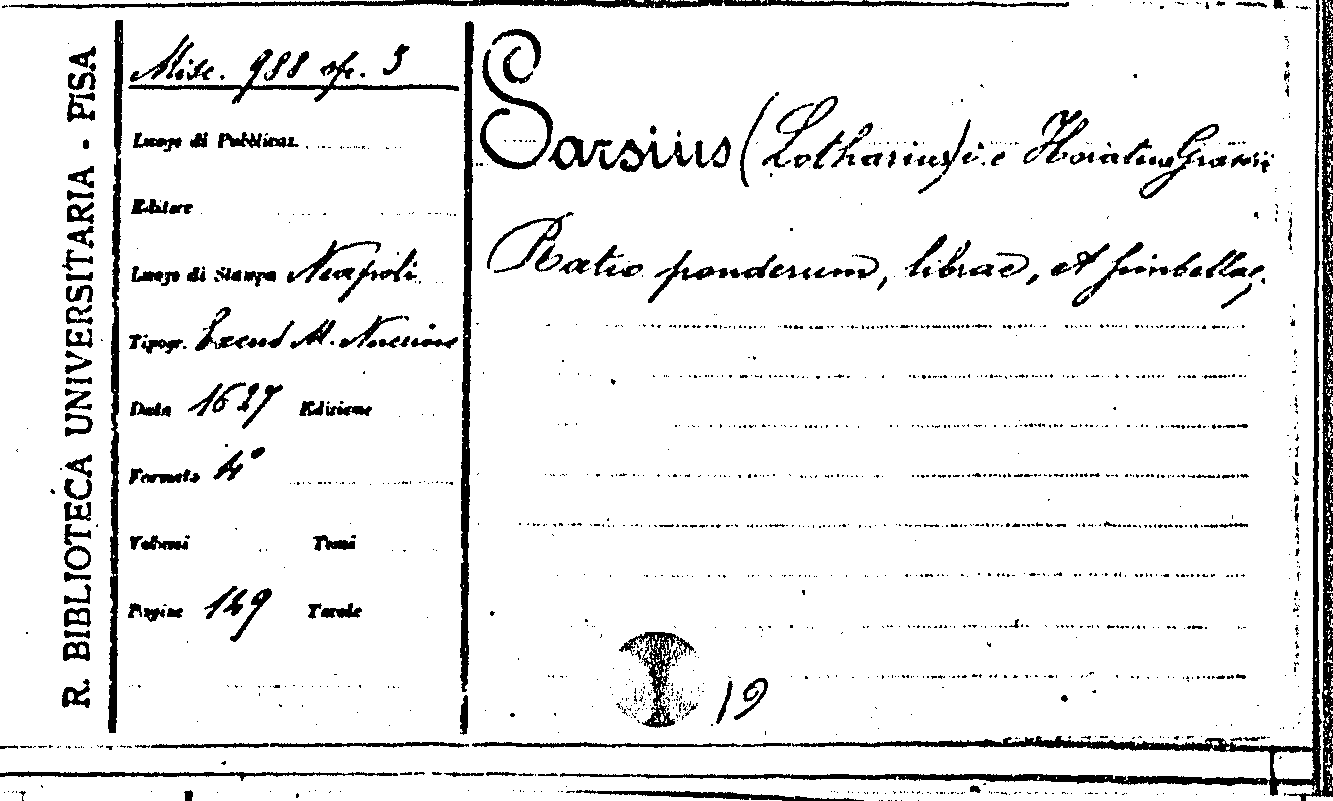 R. BIBLIOTECA UNIVERSITARIA - PISA
Misc. 988 op. 5
Luogo di Pubblicaz.
Editore
Luogo di Stampa Neapoli
Tipogr. Excud M.
Data 1627 Edizione
Formato 4°
Volumi Tomi
Pagine 149 Tavole
Sarsius (Lotharius) i.e Horatius Grassi
Ratio ponderum, librae, et simbellae,
19